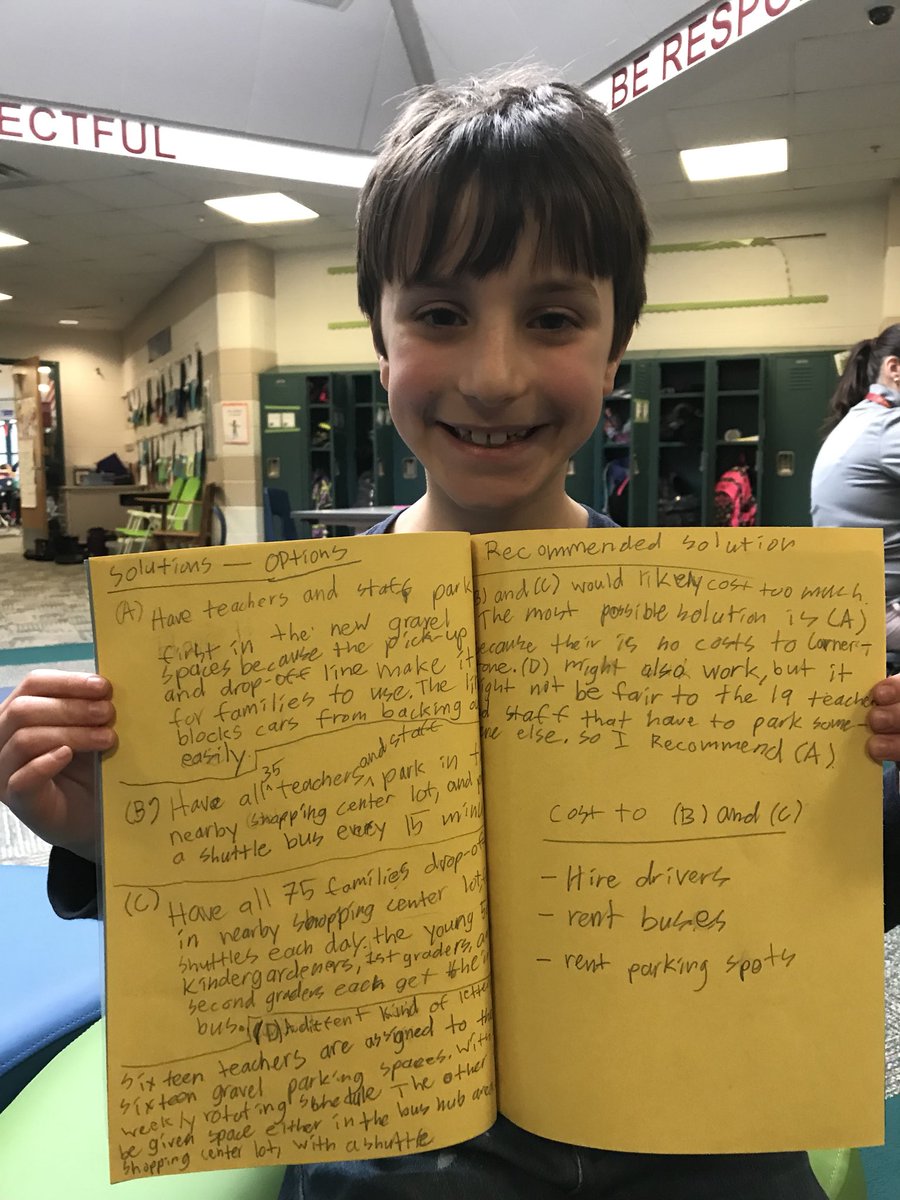 ECTFUL
BE RESPO
Solutions — Options
(A) Have teachers and staff park
first in the new gravel
spaces because the pick-up
and drop-off line make it
for families to use. The li
blocks cars from backing
easily.
(B) Have all 35 teachers and staff park in t
nearby shopping center lot, and
a shuttle bus every 15 minu
(C) Have all 75 families drop-off
in nearby shopping center lot,
shuttles each day. the young
kindergardeners, 1st graders, a
second graders each get their
bus. (D) A different kind of
sixteen teachers are assigned to the
sixteen gravel parking spaces. With
weekly rotating schedule. The other
be given space either in the bus hub area
shopping center lot, with a shuttle
Recommended solution
) and (C) would likely cost too much.
The most possible solution is (A)
ecause their is no costs to Corner-
tone. (D) might also work, but it
ight not be fair to the 19 teache
d staff that have to park some-
re else. So I Recommend (A)
Cost to (B) and (C)
- Hire drivers
- rent buses
- rent parking spots